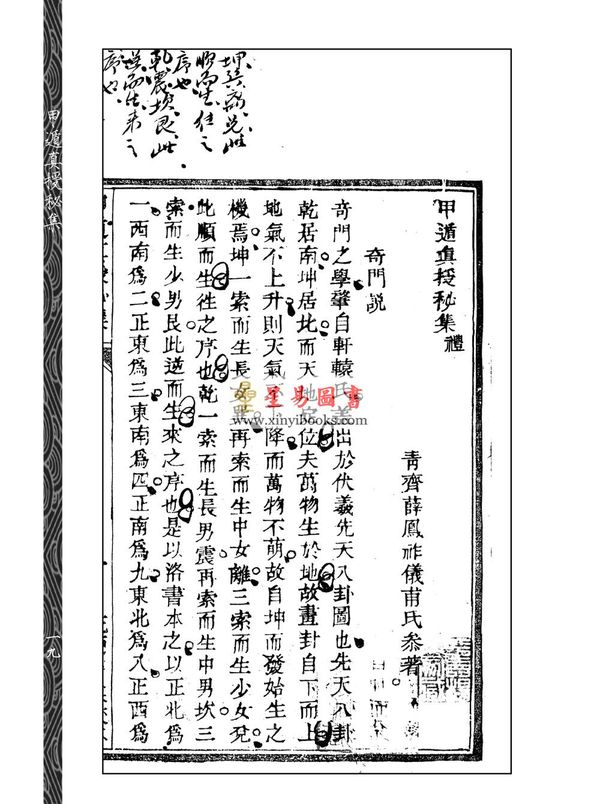 坤巽离兑此
順而生往之
序也
乾震坎艮此
逆而生来之
序也
甲遁真授秘集禮
青齊薛鳳祚儀甫氏叅著
奇門説
奇門之學肇自軒轅氏葢出於伏羲先天八卦圖也先天八卦
乾居南坤居北而天地定位夫萬物生於地故畫卦自下而上
地氣不上升則天氣不下降而萬物不萌故自坤而發始生之
機焉坤一索而生長女巽再索而生中女離三索而生少女兊
此順而生徃之序也乾一索而生長男震再索而生中男坎三
索而生少男艮此逆而生來之序也是以洛書本之以正北爲
一西南爲二正東爲三東南爲四正南爲九東北爲八正西爲
甲遁真授秘集
一九
星易圖書
www.xinyibooks.com